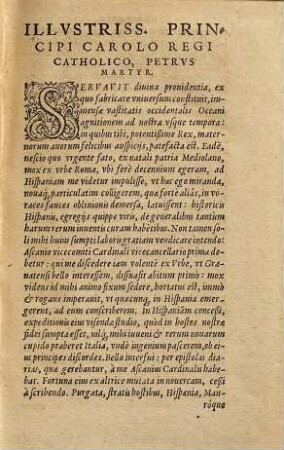 ILLVSTRISS. PRIN-
CIPI CAROLO REGI
CATHOLICO, PETRVS
MARTYR.
SERVAVIT diuina prouidentia, ex
quo fabricare vniuersum constituit, im-
mensæ vastitatis occidentalis Oceani
agnitionem ad nostra vsque tempora:
in quibus tibi, potentissime Rex, mater-
norum auorum felicibus auspicijs, patefacta est. Eadē,
nescio quo vrgente fato, ex natali patria Mediolano,
mox ex vrbe Roma, vbi ferè decennium egeram, ad
Hispaniam me videtur impulisse, vt hæc ego miranda,
nouaq́; particulatim colligerem, quæ fortè aliàs, in vo-
races fauces obliuionis demersa, latuissent: historicis
Hispanis, egregijs quippe viris, de generalibus tantùm
harum rerum inuentis curam habētibus. Non tamen so-
li mihi huius sumpti laboris gratiam vendicare intendo:
Ascanio vicecomiti Cardinali vicecancellario prima de-
betur: qui me discedere iam volentē ex Vrbe, vt Gra-
natensi bello interessem, dissuasit abitum primò: mox
videns id mihi animo fixum sedere, hortatus est, immò
& rogans imperauit, vt quæcunq, in Hispania emer-
gerent, ad eum conscriberem. In Hispaniā cōcessi,
expeditionis eius visendæ studio, quòd in hostes nostræ
fidei sumpta esset, nilq́; mihi iuueni & rerum nouarum
cupido praberet Italia, vnde ingenium pascerem, ob e-
ius principes discordes. Bello interfui: per epistolas di-
arias, quæ gerebantur, à me Ascanius Cardinalis habe-
bat. Fortuna eius ex altrice mutata in nouercam, cessi
à scribendo. Purgata, stratis hostibus, Hispania, Mau-
róque